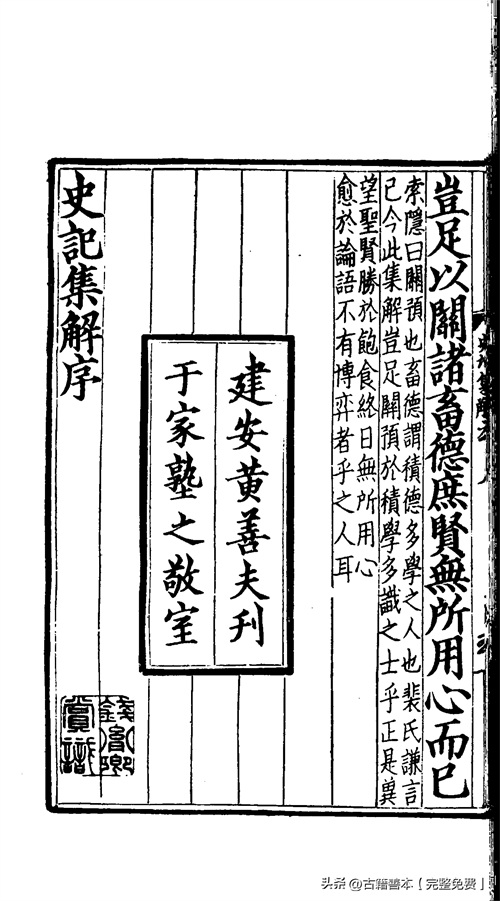 豈足以關諸畜德庶賢無所用心而已
索隱曰關預也畜德謂積德多學之人也裴氏謙言
已今此集解豈足關預於積學多識之士乎正是兾
望聖賢勝於飽食終日無所用心
愈於論語不有博弈者乎之人耳
建安黄善夫刊
于家塾之敬室
史記集解序
头条 @古籍善本【完整免费】